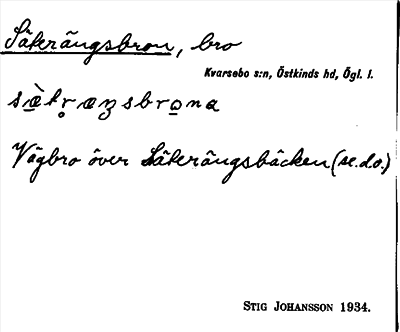 Säterängsbron, bro
Kvarsebo s:n, Östkinds hd, Ögl. l.
Vägbro över Säterängsbäcken (se.d.o.)
STIG JOHANSSON 1934.